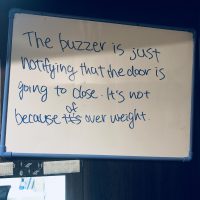 The buzzer is just
notifying that the door is
going to close. It's not
of
because its over weight